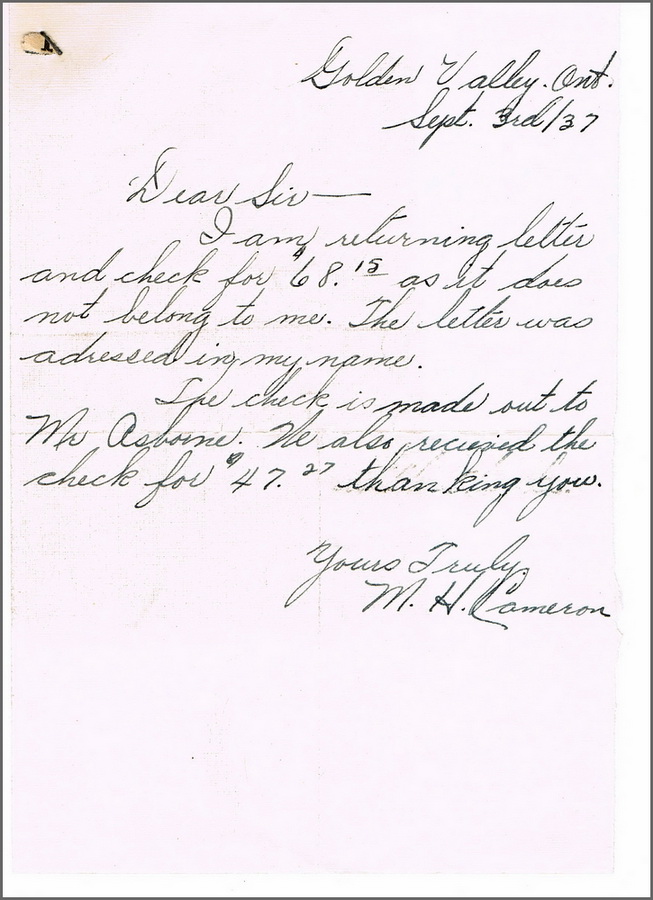 Golden Valley. Ont.
Sept. 3rd/37
Dear Sir—
I am returning letter
and check for $68.15 as it does
not belong to me. The letter was
adressed in my name.
The check is made out to
Mr Asborne. We also recieved the
check for $47.27 thanking you.
Yours Truly,
M. H. Cameron